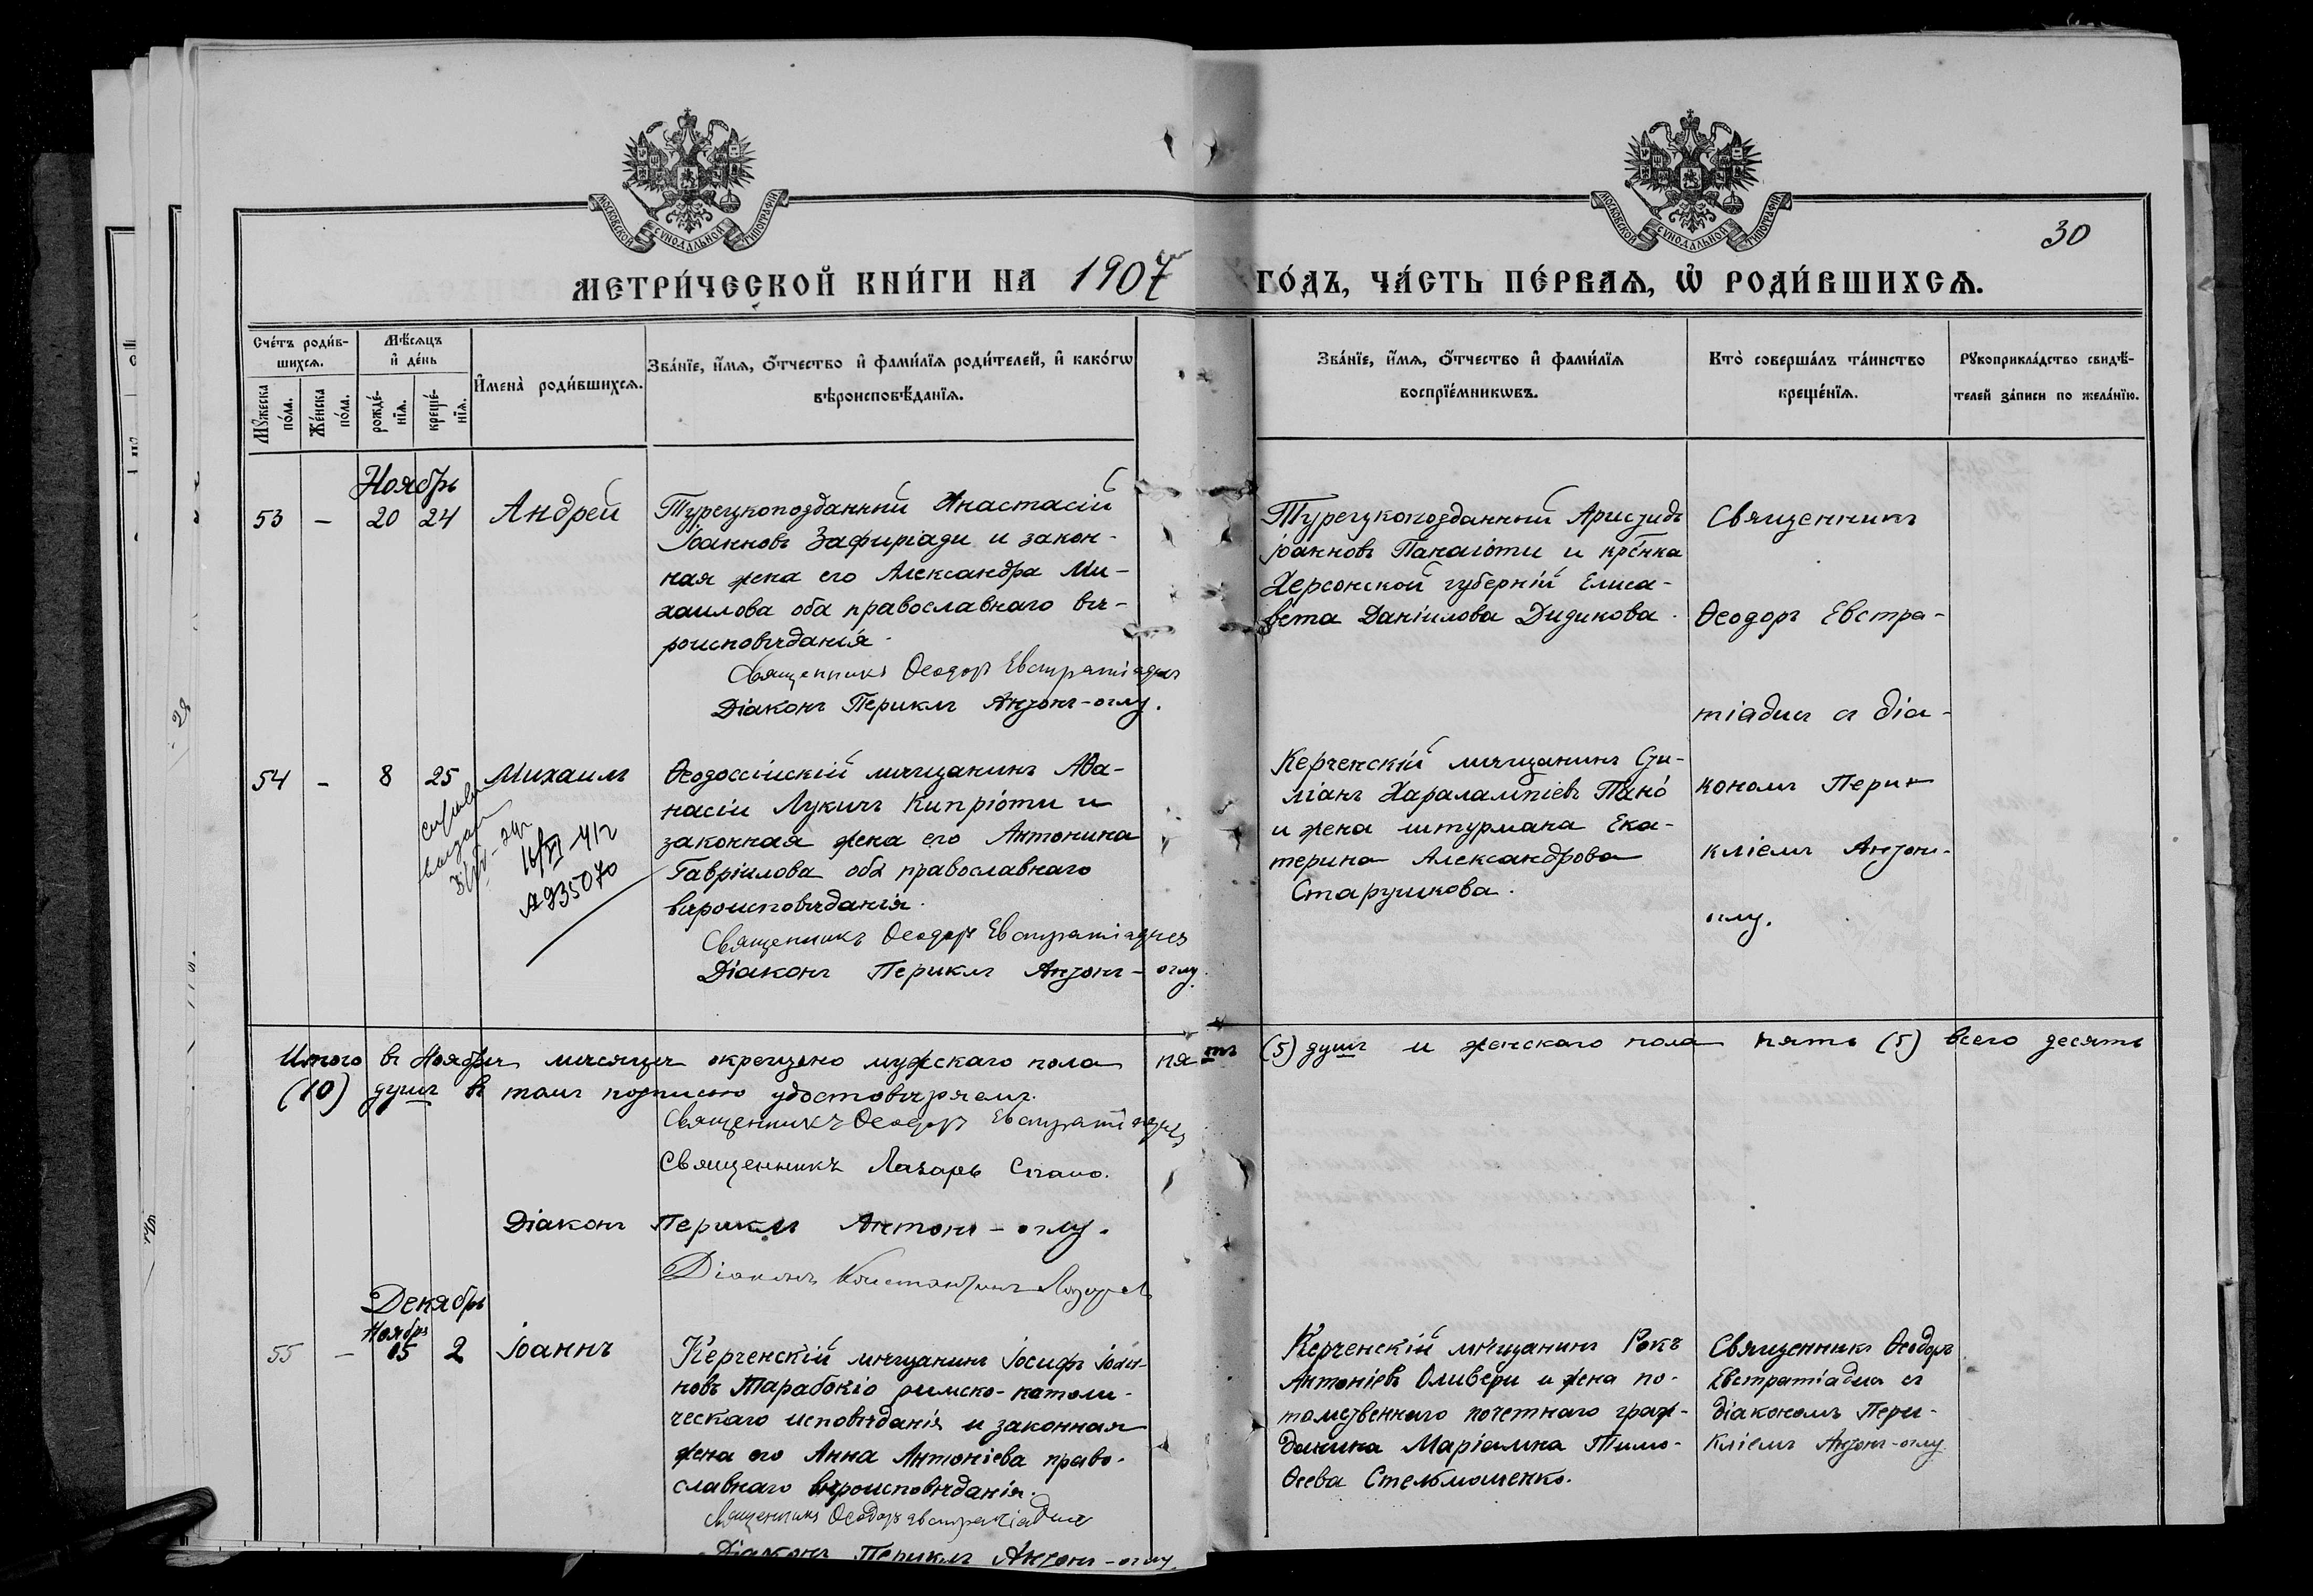 МОСКОВСКОЙ СѴНОДАЛЬНОЙ ТИПОГРАФІИ
МОСКОВСКОЙ СѴНОДАЛЬНОЙ ТИПОГРАФІИ
30
МЕТРИ́ЧЕСКОЙ КНИ́ГИ НА 1907 ГО́ДЪ, ЧА́СТЬ ПЕ́РВАѦ, Ѡ҆ РОДИ́ВШИХСѦ.
Сче́тъ роди́в-
шихсѧ.
Мѣ́сѧцъ
и҆ де́нь
Мꙋ́жеска
по́ла.
Же́нска
по́ла.
рожде́-
нїѧ.
креще́-
нїѧ.
И҆мена̀ роди́вшихсѧ.
Зва́нїе, и҆́мѧ, о҆́тчество и҆ фами́лїѧ роди́телей, и҆ како́гѡ
вѣроисповѣ́данїѧ.
Зва́нїе, и҆́мѧ, о҆́тчество и҆ фами́лїѧ
воспрїе́мникѡвъ.
Кто̀ соверша́лъ та́инство
креще́нїѧ.
Рꙋкоприкла́дство свидѣ́-
телей за́писи по жела́нїю.
Ноябрь
53 — 20 24 Андрей
Турецкоподданный Анастасій
Іоанновъ Зафиріади и закон-
ная жена его Александра Ми-
хаилова оба православнаго вѣ-
роисповѣданія.
Священникъ Ѳеодоръ Евстратіадисъ
Діаконъ Периклъ Антонъ-оглу.
Турецкоподданный Аристидъ
Іоанновъ Панаіоти и кр-нка
Херсонской губерніи Елиса-
вета Даніилова Дидикова.
Священникъ
Ѳеодоръ Евстра-
тіадисъ съ діа-
кономъ Пери-
кліемъ Антонъ-
оглу.
54 — 8 25 Михаилъ
16/VI-41г
А935070
Ѳеодосійскій мѣщанинъ Аѳа-
насій Лукичъ Кипріоти и
законная жена его Антонина
Гавріилова оба православнаго
вѣроисповѣданія.
Священникъ Ѳеодоръ Евстратіадисъ
Діаконъ Периклъ Антонъ-оглу.
Керченскій мѣщанинъ Сти-
ліанъ Харалампіевъ Пано
и жена штурмана Ека-
терина Александрова
Старушкова.
Итого въ Ноябрѣ мѣсяцѣ окрещено мужскаго пола пять (5) душъ и женскаго пола пять (5) всего десять
(10) душъ въ томъ подписью удостовѣряемъ.
Священникъ Ѳеодоръ Евстратіадисъ
Священникъ Лазарь Спано.
Діаконъ Периклъ Антонъ-оглу.
Діаконъ Константинъ
Декабрь
Ноябрь
55 — 15 2 Іоаннъ
Керченскій мѣщанинъ Іосифъ Іоан-
новъ Тарабокіо римско-католи-
ческаго исповѣданія и законная
жена его Анна Антоніева право-
славнаго вѣроисповѣданія.
Священникъ Ѳеодоръ Евстратіадисъ
Діаконъ Периклъ Антонъ-оглу.
Керченскій мѣщанинъ Рокъ
Антоніевъ Оливери и жена по-
томственнаго почетнаго граж-
данина Маріамна Тимо-
ѳеева Стельмашенко.
Священникъ Ѳеодоръ
Евстратіадисъ съ
діакономъ Пери-
кліемъ Антонъ-оглу